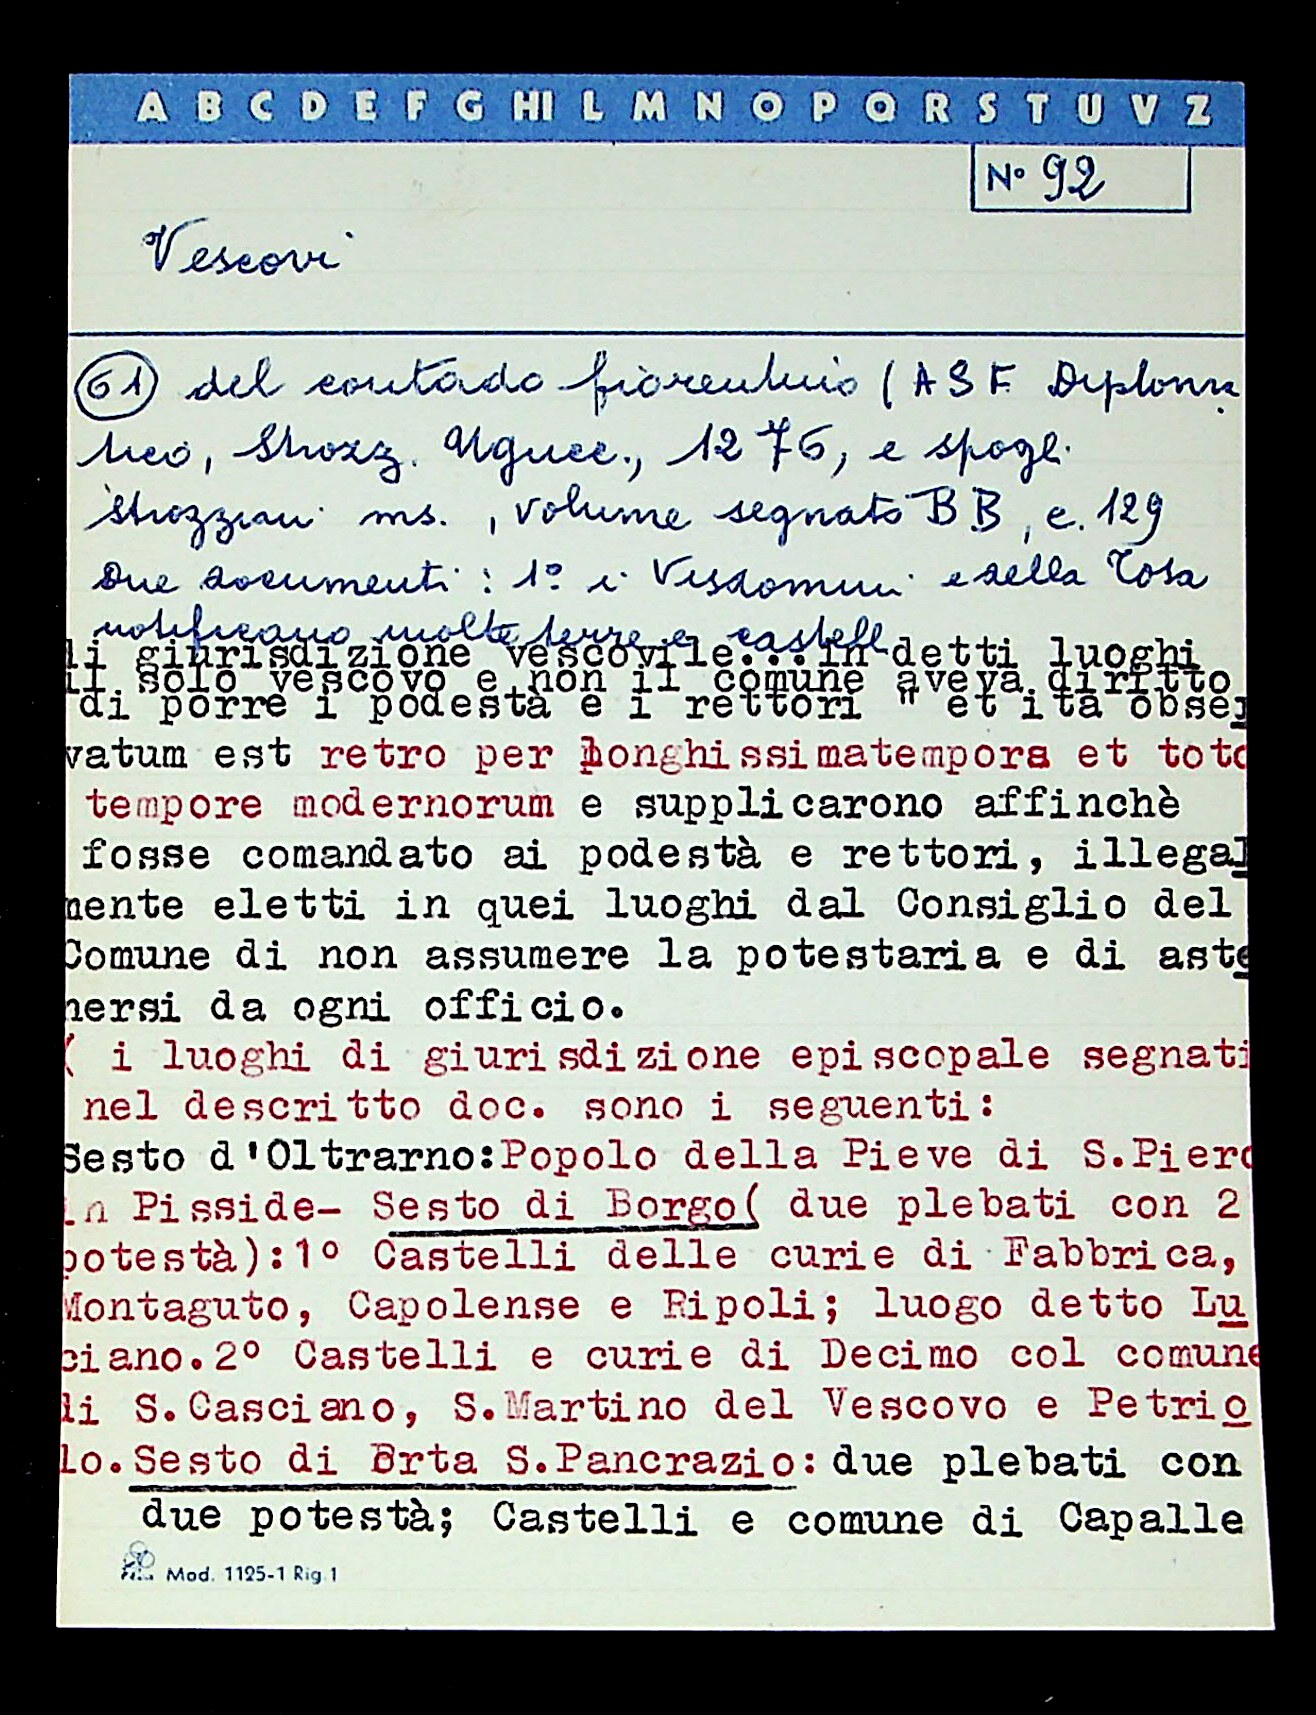 A B C D E F G HI L M N O P Q R S T U V Z
Nº 92
Vescovi
61 del contado fiorentino ( ASF Diploma
tico, Strozz. Ugucc., 1276, e spogl.
Strozziani ms. , volume segnato BB, c. 129
Due documenti : 1º i Visdomini e della Tosa
notificano molte terre e castell
li giurisdizione vescovile...in detti luoghi
il solo vescovo e non il comune aveva diritto
di porre i podestà e i rettori " et ita obser
vatum est retro per longhissimatempora et toto
tempore modernorum e supplicarono affinchè
fosse comandato ai podestà e rettori, illegal
mente eletti in quei luoghi dal Consiglio del
Comune di non assumere la potestaria e di aste
nersi da ogni officio.
( i luoghi di giurisdizione episcopale segnati
nel descritto doc. sono i seguenti:
Sesto d'Oltrarno:Popolo della Pieve di S.Piero
in Pisside- Sesto di Borgo( due plebati con 2
potestà):1º Castelli delle curie di Fabbrica,
Montaguto, Capolense e Ripoli; luogo detto Lu
ciano.2º Castelli e curie di Decimo col comune
di S.Casciano, S.Martino del Vescovo e Petrio
lo.Sesto di Prta S.Pancrazio:due plebati con
due potestà; Castelli e comune di Capalle
Mod. 1125-1 Rig 1